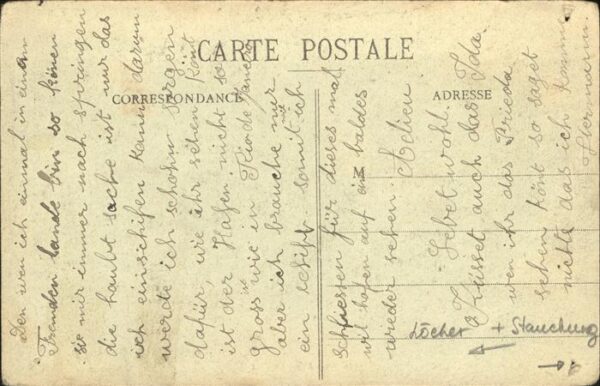 CARTE POSTALE
CORRESPONDANCE
ADRESSE
Den wen ich einmal in einem
Fremden lande bin so können
sie mir immer nach springen
die haubt sache ist nur das
ich einschifen kann darum
werde ich schohn sorgen
dafür, wie ihr sehen könt
ist der Hafen nicht so
gross wie in Rio de Janeiro
aber ich brauche nur
ein schiff somit ich
schliessen für dieses mal
wil hofen auf ein baldes
wieder sehen Adieu
Lebet wohl
Küsset auch das Ida
wen ihr das Frieda
sehen könt so saget
nichts das ich komme
Hermann
Löcher + Stauchung